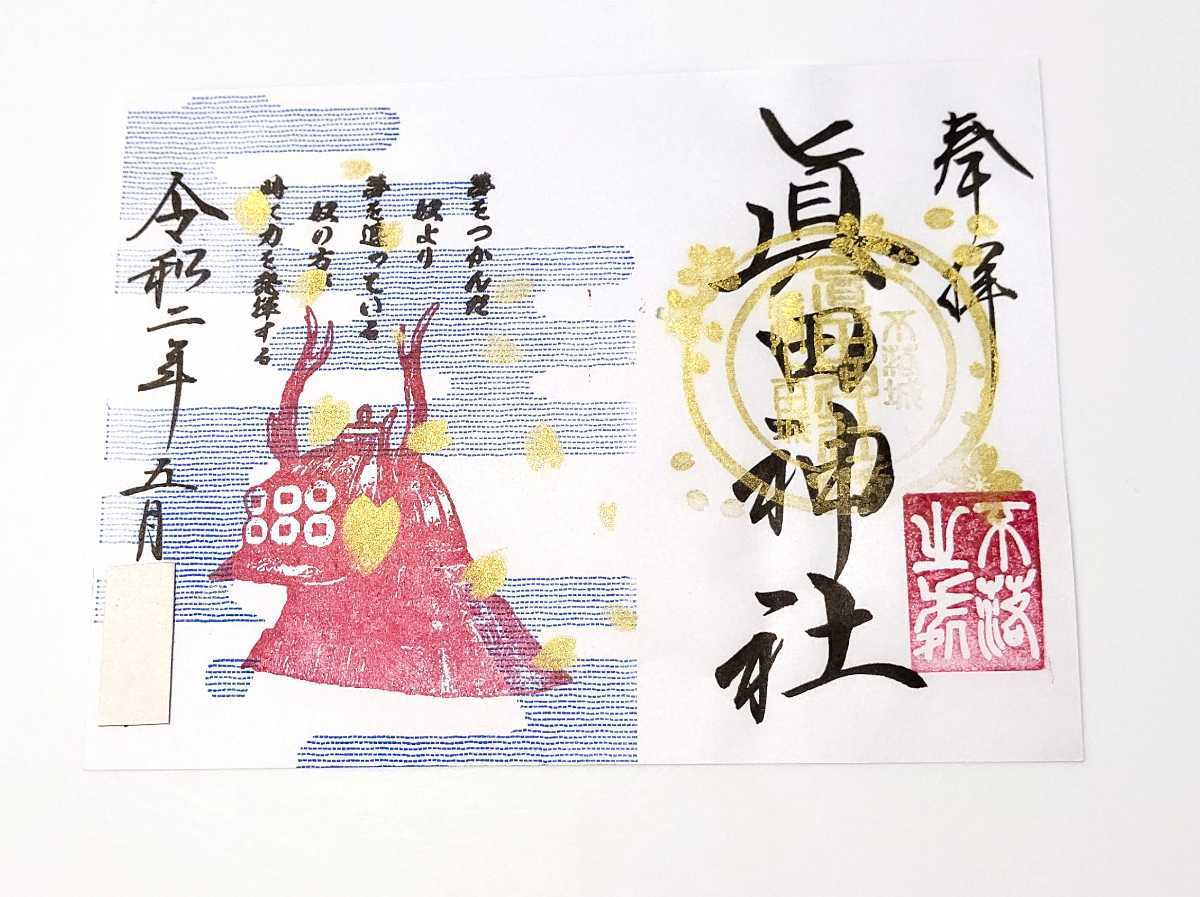 奉拝
眞田神社
不落城
不落
夢をつかんだ
奴より
夢を追っている
奴の方が
時に力を発揮する
令和二年 五月